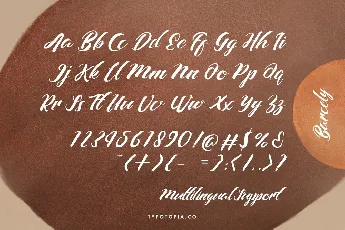 Aa Bb Cc Dd Ee Ff Gg Hh Ii
Jj Kk Ll Mm Nn Oo Pp Qq
Rr Ss Tt Uu Vv Ww Xx Yy Zz
Barcely
Multilingual Support
TYPOTOPIA.CO